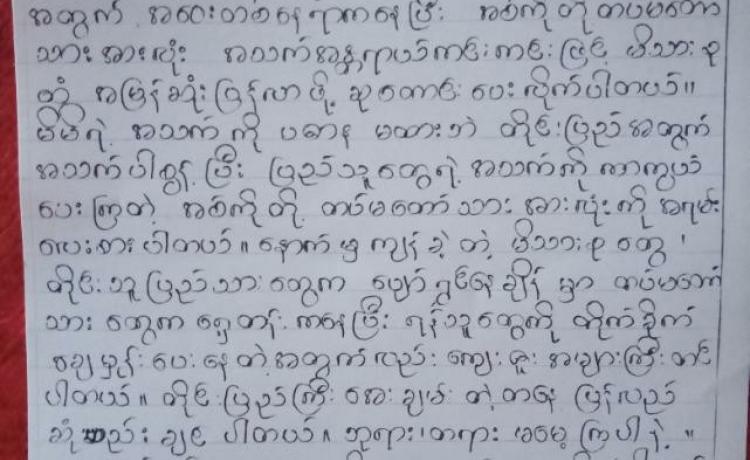 အတွက် အဝေးတစ်နေရာကနေပြီး အစ်ကိုတို့ တပ်မတော်
သားအားလုံး အသက်အန္တရာယ်ကင်းကင်းဖြင့် မိသားစု
ထံ အမြန်ဆုံးပြန်လာဖို့ ဆုတောင်းပေးလိုက်ပါတယ်။
မိမိရဲ့ အသက်ကို ပဓာန မထားဘဲ တိုင်းပြည်အတွက်
အသက်ပါစွန့်ပြီး ပြည်သူတွေရဲ့အသက်ကို ကာကွယ်
ပေးကြတဲ့ အစ်ကိုတို့ တပ်မတော်သားအားလုံးကို အရမ်း
လေးစားပါတယ်။ နောက်မှာကျန်ခဲ့တဲ့ မိသားစုတွေ၊
တိုင်းသူပြည်သားတွေက ပျော်ရွှင်နေချိန်မှာ တပ်မတော်
သားတွေက ရှေ့တန်းကနေပြီး ရန်သူတွေကို တိုက်ခိုက်
ချေမှုန်းပေးနေတဲ့အတွက်လည်း ကျေးဇူးအများကြီးတင်
ပါတယ်။ တိုင်းပြည်ကြီး အေးချမ်းတဲ့တနေ့ ပြန်လည်
ဆုံစည်းချင်ပါတယ်။ ဘုရား၊တရား မမေ့ကြပါနဲ့။